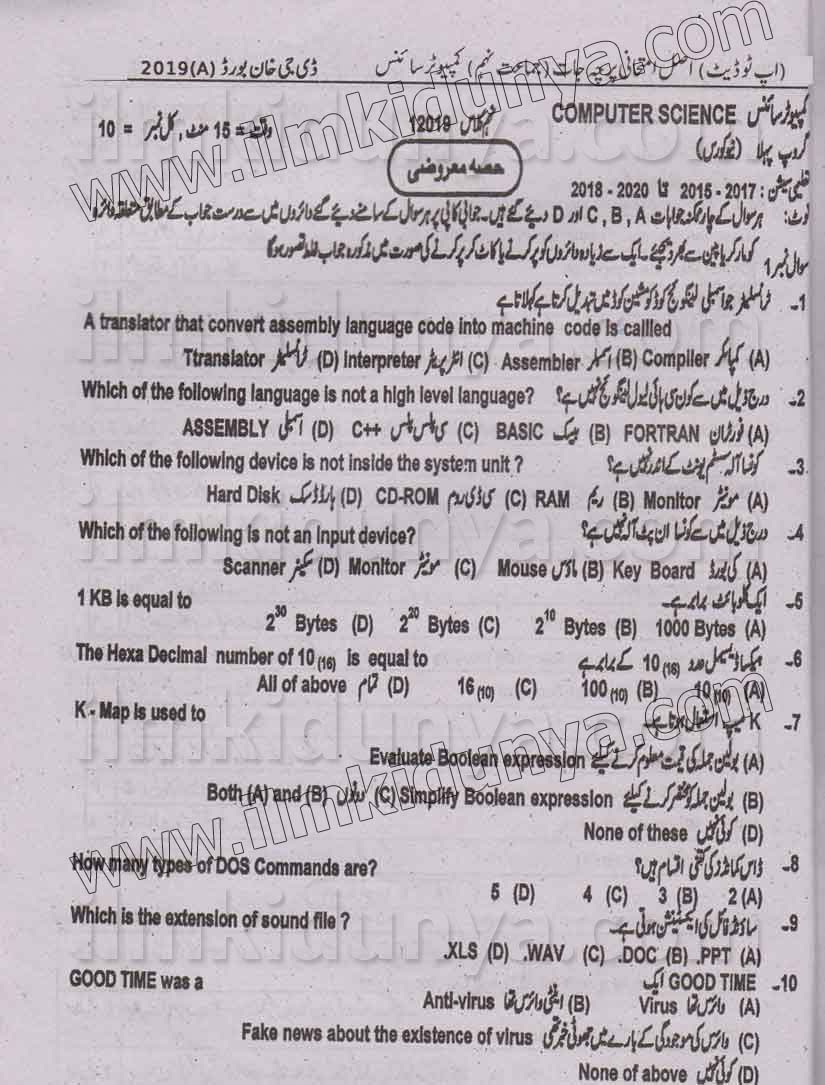 (اپ ٹو ڈیٹ) اصل امتحانی پرچہ جات (جماعت نہم) کمپیوٹر سائنس ڈی جی خان بورڈ 2019(A)
کمپیوٹر سائنس COMPUTER SCIENCE 12019 وقت = 15 منٹ, کل نمبر = 10
گروپ پہلا
حصہ معروضی
تعلیمی سیشن : 2017 - 2015 تا 2020 - 2018
نوٹ: ہر سوال کے چار ممکنہ جوابات C , B , A اور D دیئے گئے ہیں۔ جوابی کاپی پر ہر سوال کے سامنے دیئے گئے دائروں میں سے درست جواب کے مطابق متعلقہ دائرہ
کو مارکر یا پین سے بھر دیجئے۔ ایک سے زیادہ دائروں کو پر کرنے یا کاٹ کر پر کرنے کی صورت میں مذکورہ جواب غلط تصور ہو گا
سوال نمبر 1
1۔ ٹرانسلیٹر جو اسمبلی لینگوئج کوڈ کو مشین کوڈ میں تبدیل کرتا ہے کہلاتا ہے
A translator that convert assembly language code into machine code is callled
(A) کمپائلر Compiler (B) اسمبلر Assembler (C) انٹرپریٹر Interpreter (D) ٹرانسلیٹر Ttranslator
2۔ درج ذیل میں سے کون سی ہائی لیول لینگوئج نہیں ہے؟ Which of the following language is not a high level language?
(A) فورٹران FORTRAN (B) بیسک BASIC (C) سی پلس پلس C++ (D) اسمبلی ASSEMBLY
3۔ کونسا آلہ سسٹم یونٹ کے اندر نہیں ہے؟ Which of the following device is not inside the system unit ?
(A) مونیٹر Monitor (B) ریم RAM (C) سی ڈی روم CD-ROM (D) ہارڈ ڈسک Hard Disk
4۔ درج ذیل میں سے کونسا ان پٹ آلہ نہیں ہے؟ Which of the following is not an input device?
(A) کی بورڈ Key Board (B) ماؤس Mouse (C) مونیٹر Monitor (D) سکینر Scanner
5۔ ایک کلو بائٹ برابر ہے۔ 1 KB is equal to
(A) 1000 Bytes (B) 2^10 Bytes (C) 2^20 Bytes (D) 2^30 Bytes
6۔ ہیگزا ڈیسیمل عدد 10 (16) کے برابر ہے The Hexa Decimal number of 10 (16) is equal to
(A) 10 (10) (B) 100 (10) (C) 16 (10) (D) تمام All of above
7۔ K میپ استعمال ہوتا ہے۔ K - Map is used to
(A) بولین جملہ کی قیمت معلوم کرنے کیلئے Evaluate Boolean expression
(B) بولین جملہ کو مختصر کرنے کیلئے Simplify Boolean expression (C) دونوں Both (A) and (B)
(D) کوئی نہیں None of these
8۔ ڈاس کمانڈز کی کتنی اقسام ہیں؟ How many types of DOS Commands are?
(A) 2 (B) 3 (C) 4 (D) 5
9۔ ساؤنڈ فائل کی ایکسٹینشن ہوتی ہے۔ Which is the extension of sound file ?
(A) .PPT (B) .DOC (C) .WAV (D) .XLS
10۔ GOOD TIME ایک GOOD TIME was a
(A) وائرس تھا Virus (B) اینٹی وائرس تھا Anti-virus
(C) وائرس کی موجودگی کے بارے میں جھوٹی خبر تھی Fake news about the existence of virus
(D) کوئی نہیں None of above
www.ilmkidunya.com
www.ilmkidunya.com
ilmkidunya.com
ilmkidunya.com
ilmkidunya.com
ilmkidunya.com
ilmkidunya.com